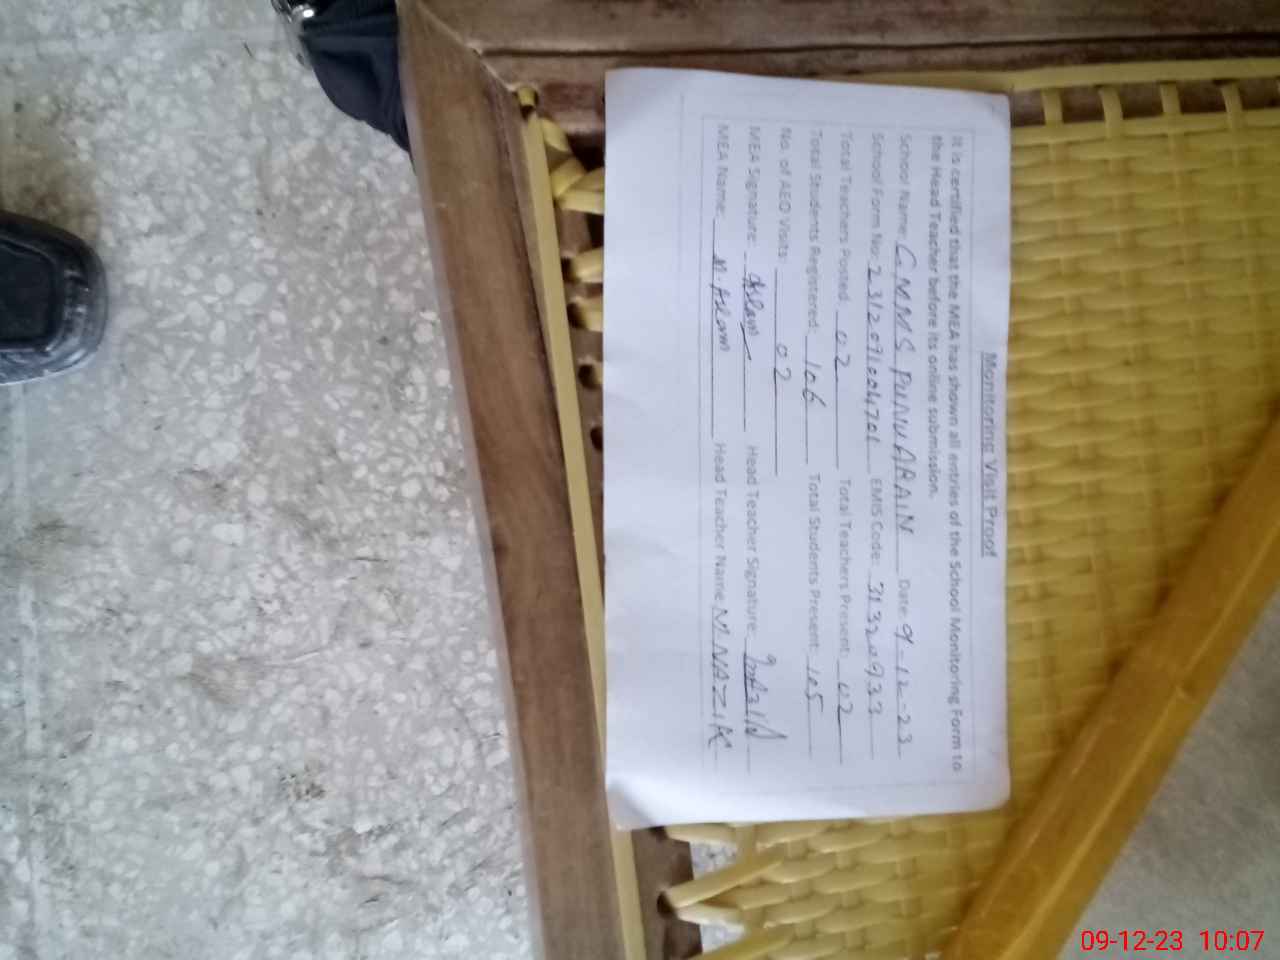 Monitoring Visit Proof
It is certified that the MEA has shown all entries of the School Monitoring Form to
the Head Teacher before its online submission.
School Name: GMMS PUNNU ARAIN Date: 9-12-23
School Form No: 2312091004701 EMIS Code: 31320933
Total Teachers Posted: 02 Total Teachers Present: 02
Total Students Registered: 106 Total Students Present: 105
No. of AEO Visits: 02
MEA Signature: Aslam Head Teacher Signature:
MEA Name: M. Aslam Head Teacher Name: M NAZIR
09-12-23 10:07